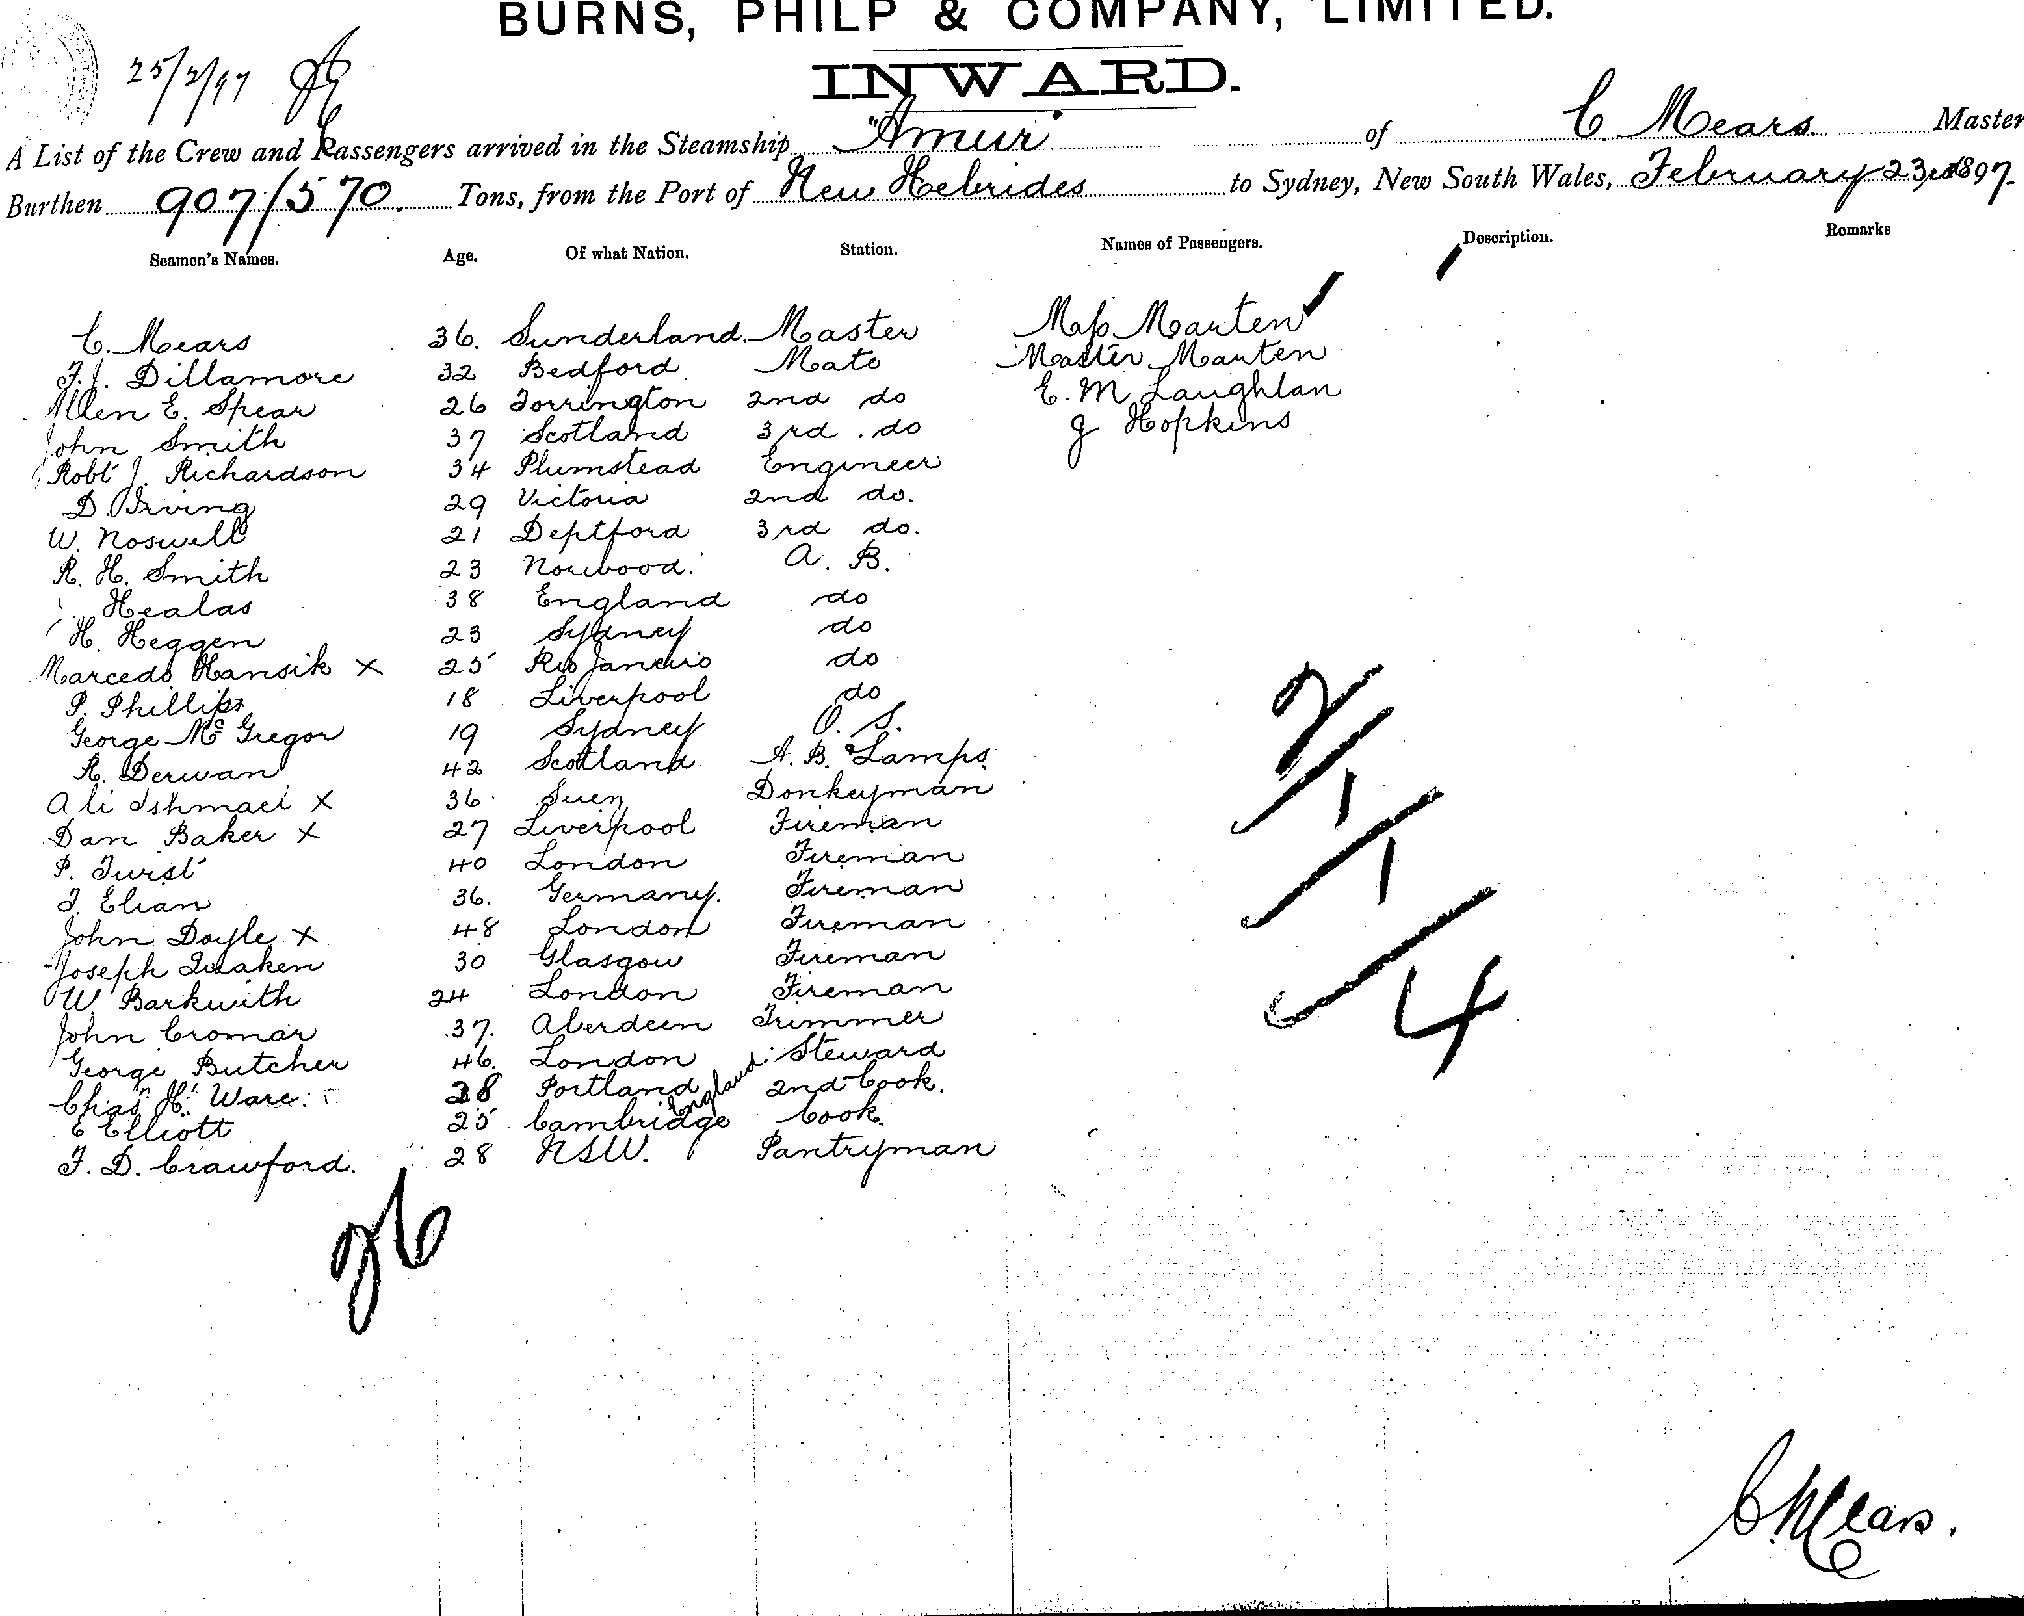 BURNS, PHILP & COMPANY, LIMITED.
25/2/97
INWARD.
A List of the Crew and Passengers arrived in the Steamship "Amur" of C Mears Master
Burthen 907/570. Tons, from the Port of New Hebrides to Sydney, New South Wales, February 23rd 1897.
Seamen's Names. Age. Of what Nation. Station. Names of Passengers. Description. Remarks
C. Mears 36. Sunderland. Master Mrs Marten
F. J. Dillamore 32 Bedford Mate Master Marten
Allen E. Spear 26 Torrington 2nd do E. McLaughlan
John Smith 37 Scotland 3rd do J Hopkins
Robt J. Richardson 34 Plumstead Engineer
D. Irving 29 Victoria 2nd do.
W. Noswell 21 Deptford 3rd do.
R. H. Smith 23 Norwood. A. B.
Healas 38 England do
H. Heggen 23 Sydney do
Marcedo Hansik x 25 Rio Janeiro do
P. Phillips 18 Liverpool do
George McGregor 19 Sydney O. S.
R. Derwan 42 Scotland A. B. & Lamps
Ali Ishmael x 36 Suez Donkeyman
Dan Baker x 27 Liverpool Fireman
P. Furst 40 London Fireman
J. Elian 36. Germany. Fireman
John Doyle x 48 London Fireman
Joseph Quaken 30 Glasgow Fireman
W Barkwith 24 London Fireman
John Cromar 37. Aberdeen Trimmer
George Butcher 46. London Steward
Chas H. Ware 28 Portland England 2nd Cook.
E Elliott 25 Cambridge Cook
F. D. Crawford. 28 NSW. Pantryman
2/1/1/4
26
C. Mears.